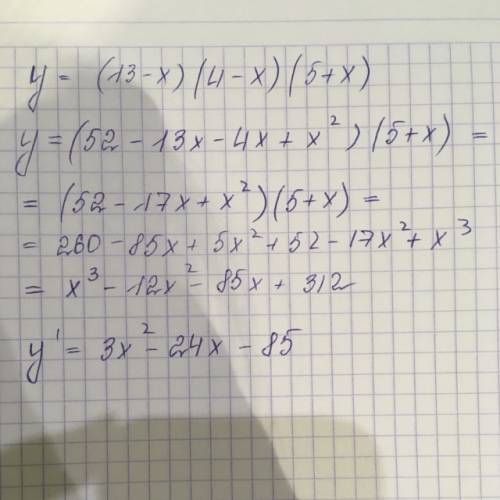 y = (13-x)(4-x)(5+x)
y = (52 - 13x - 4x + x²)(5+x) =
= (52 - 17x + x²)(5+x) =
= 260 - 85x + 5x² + 52 - 17x² + x³
= x³ - 12x² - 85x + 312
y' = 3x² - 24x - 85